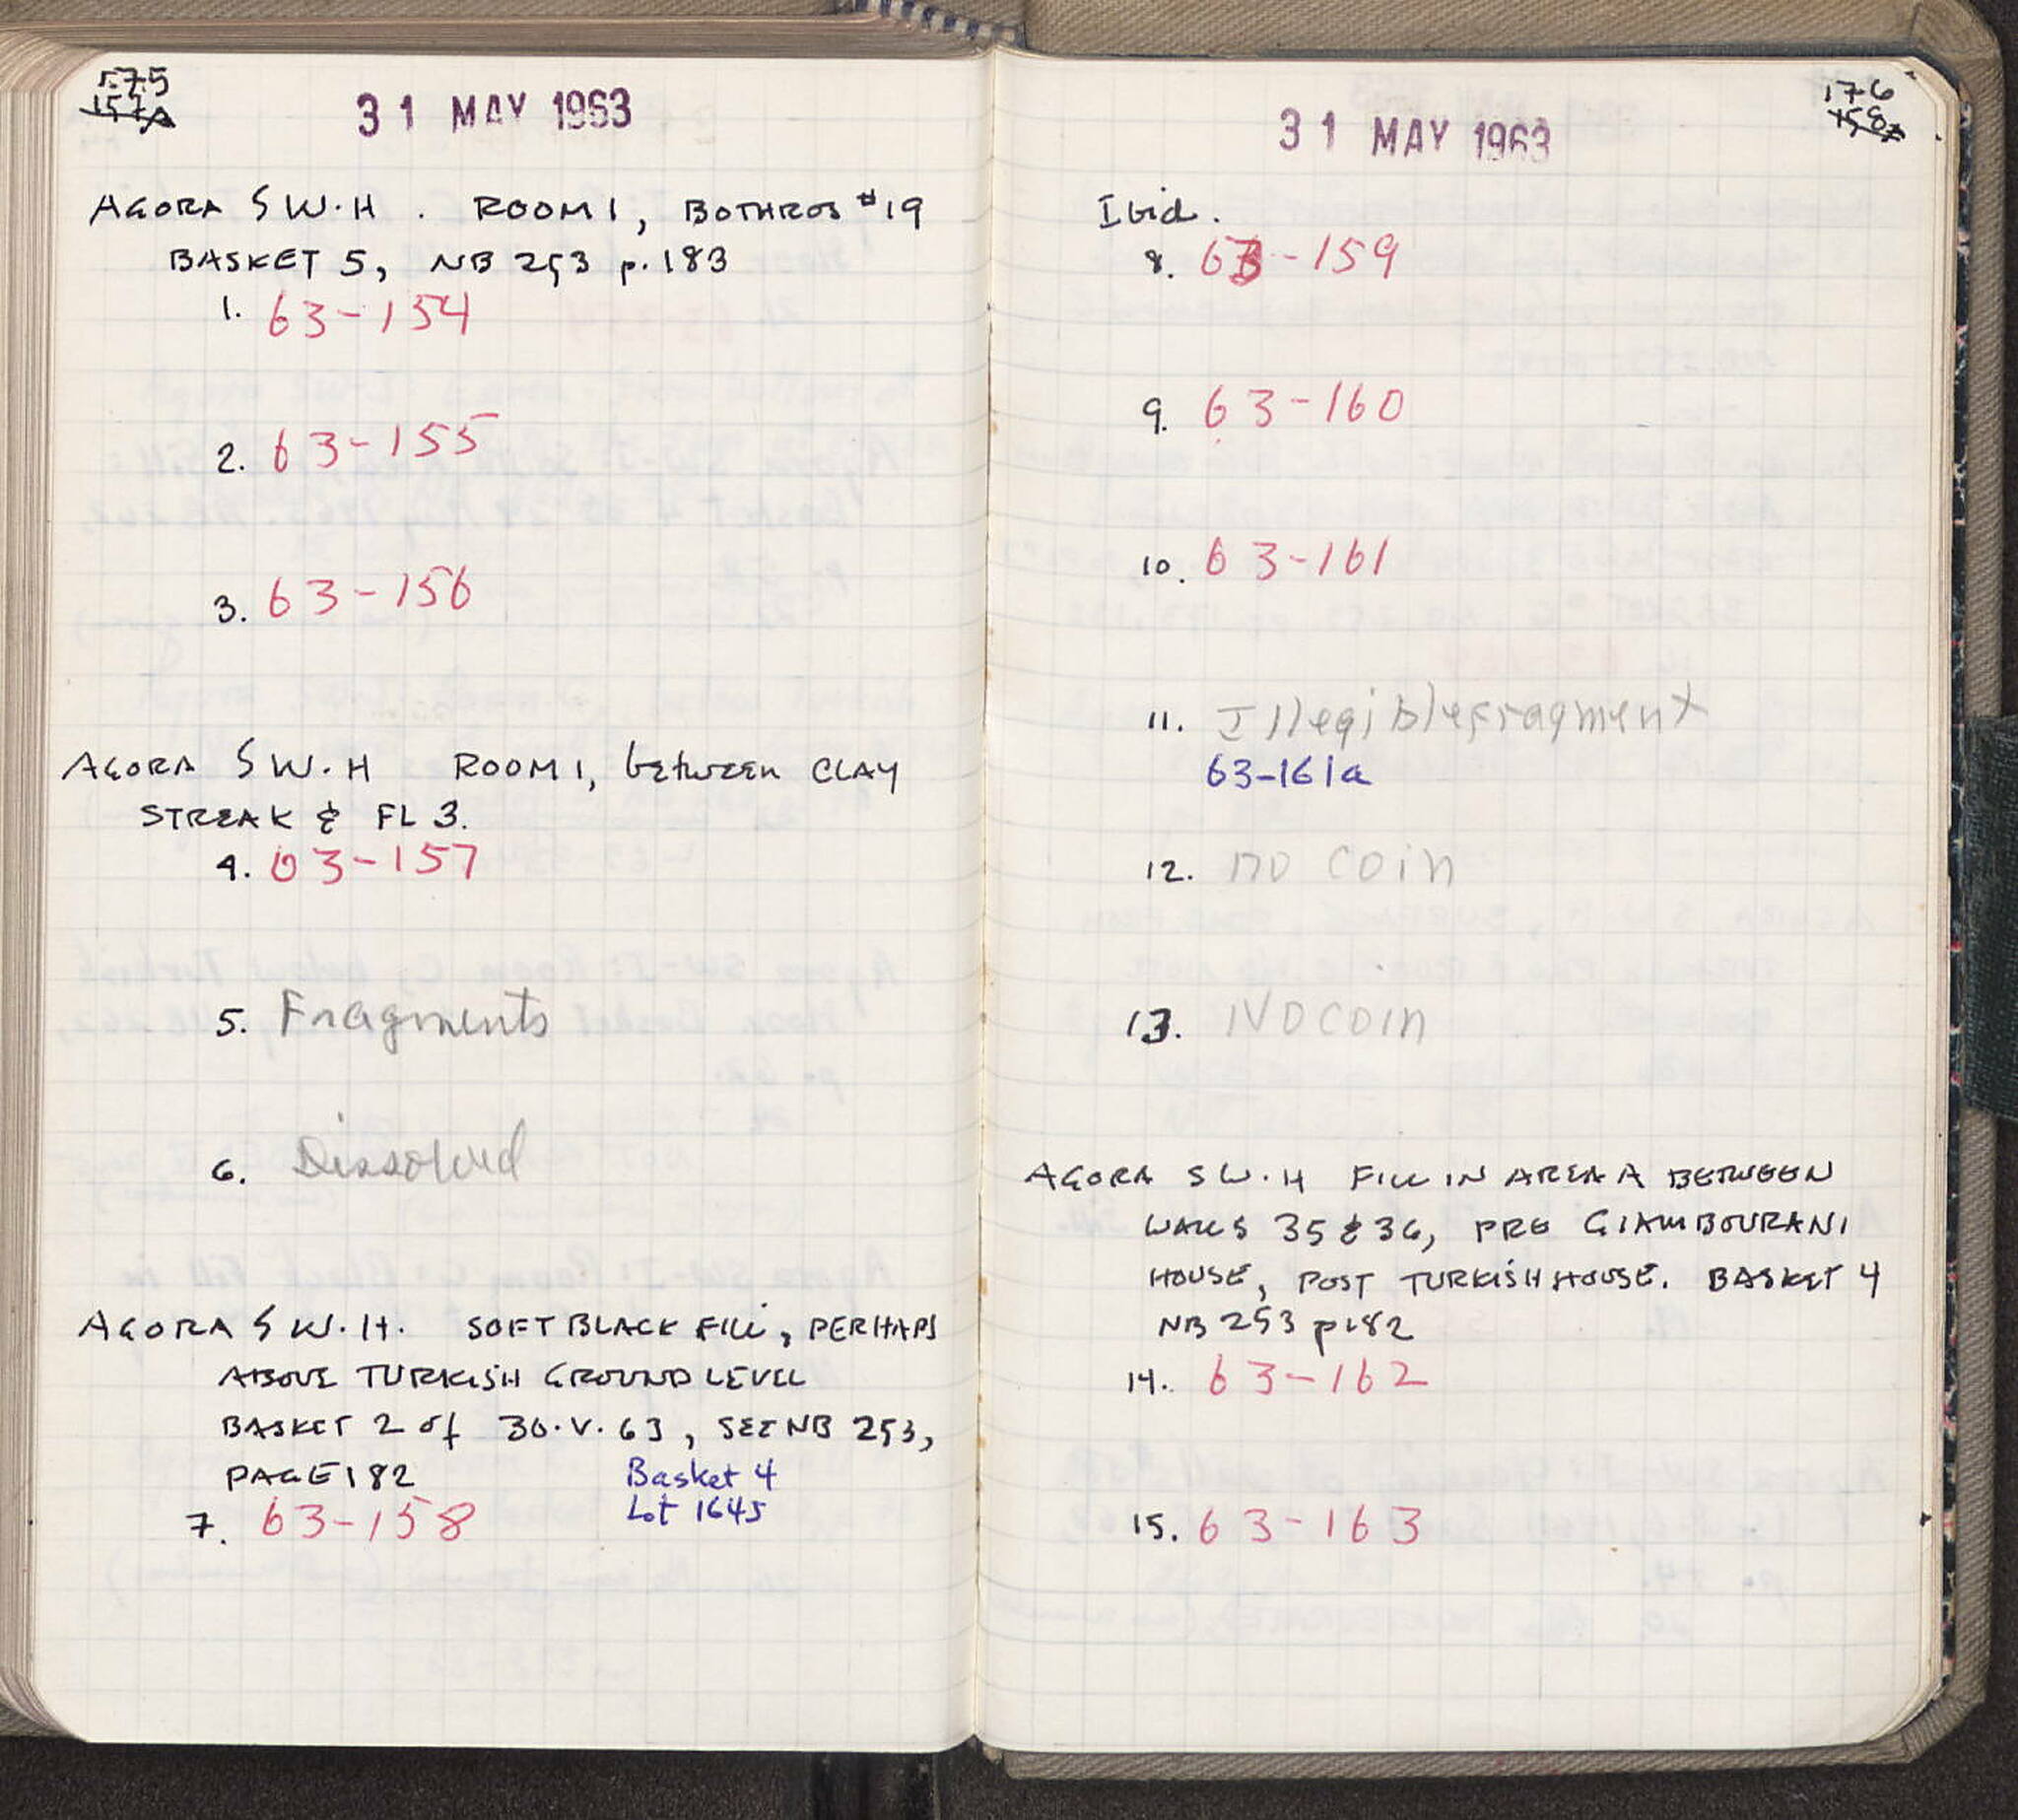 175
157A
31 MAY 1963
AGORA SW·H. ROOM 1, BOTHROS #19
BASKET 5, NB 253 p. 183
1. 63-154
2. 63-155
3. 63-156
AGORA SW·H ROOM 1, between CLAY
STREAK & FL 3.
4. 63-157
5. Fragments
6. Dissolved
AGORA SW·H. SOFT BLACK FILL, PERHAPS
ABOVE TURKISH GROUND LEVEL
BASKET 2 of 30·V·63, SEE NB 253,
PAGE 182
Basket 4
Lot 1645
7. 63-158
176
31 MAY 1963
Ibid.
8. 63-159
9. 63-160
10. 63-161
11. Illegible fragment
63-161a
12. no coin
13. No coin
AGORA SW·H FILL IN AREA A BETWEEN
WALLS 35 & 36, PRE GIAMBOURANI
HOUSE, POST TURKISH HOUSE. BASKET 4
NB 253 p 182
14. 63-162
15. 63-163